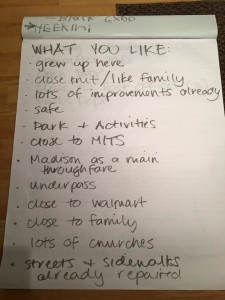 WHAT YOU LIKE:
- grew up here
- close knit/like family
- lots of improvements already
- safe
- Park + Activities
- close to MITS
• Madison as a main
thoroughfare
• underpass
• close to walmart
• close to family
lots of churches
• streets + sidewalks
already repaired